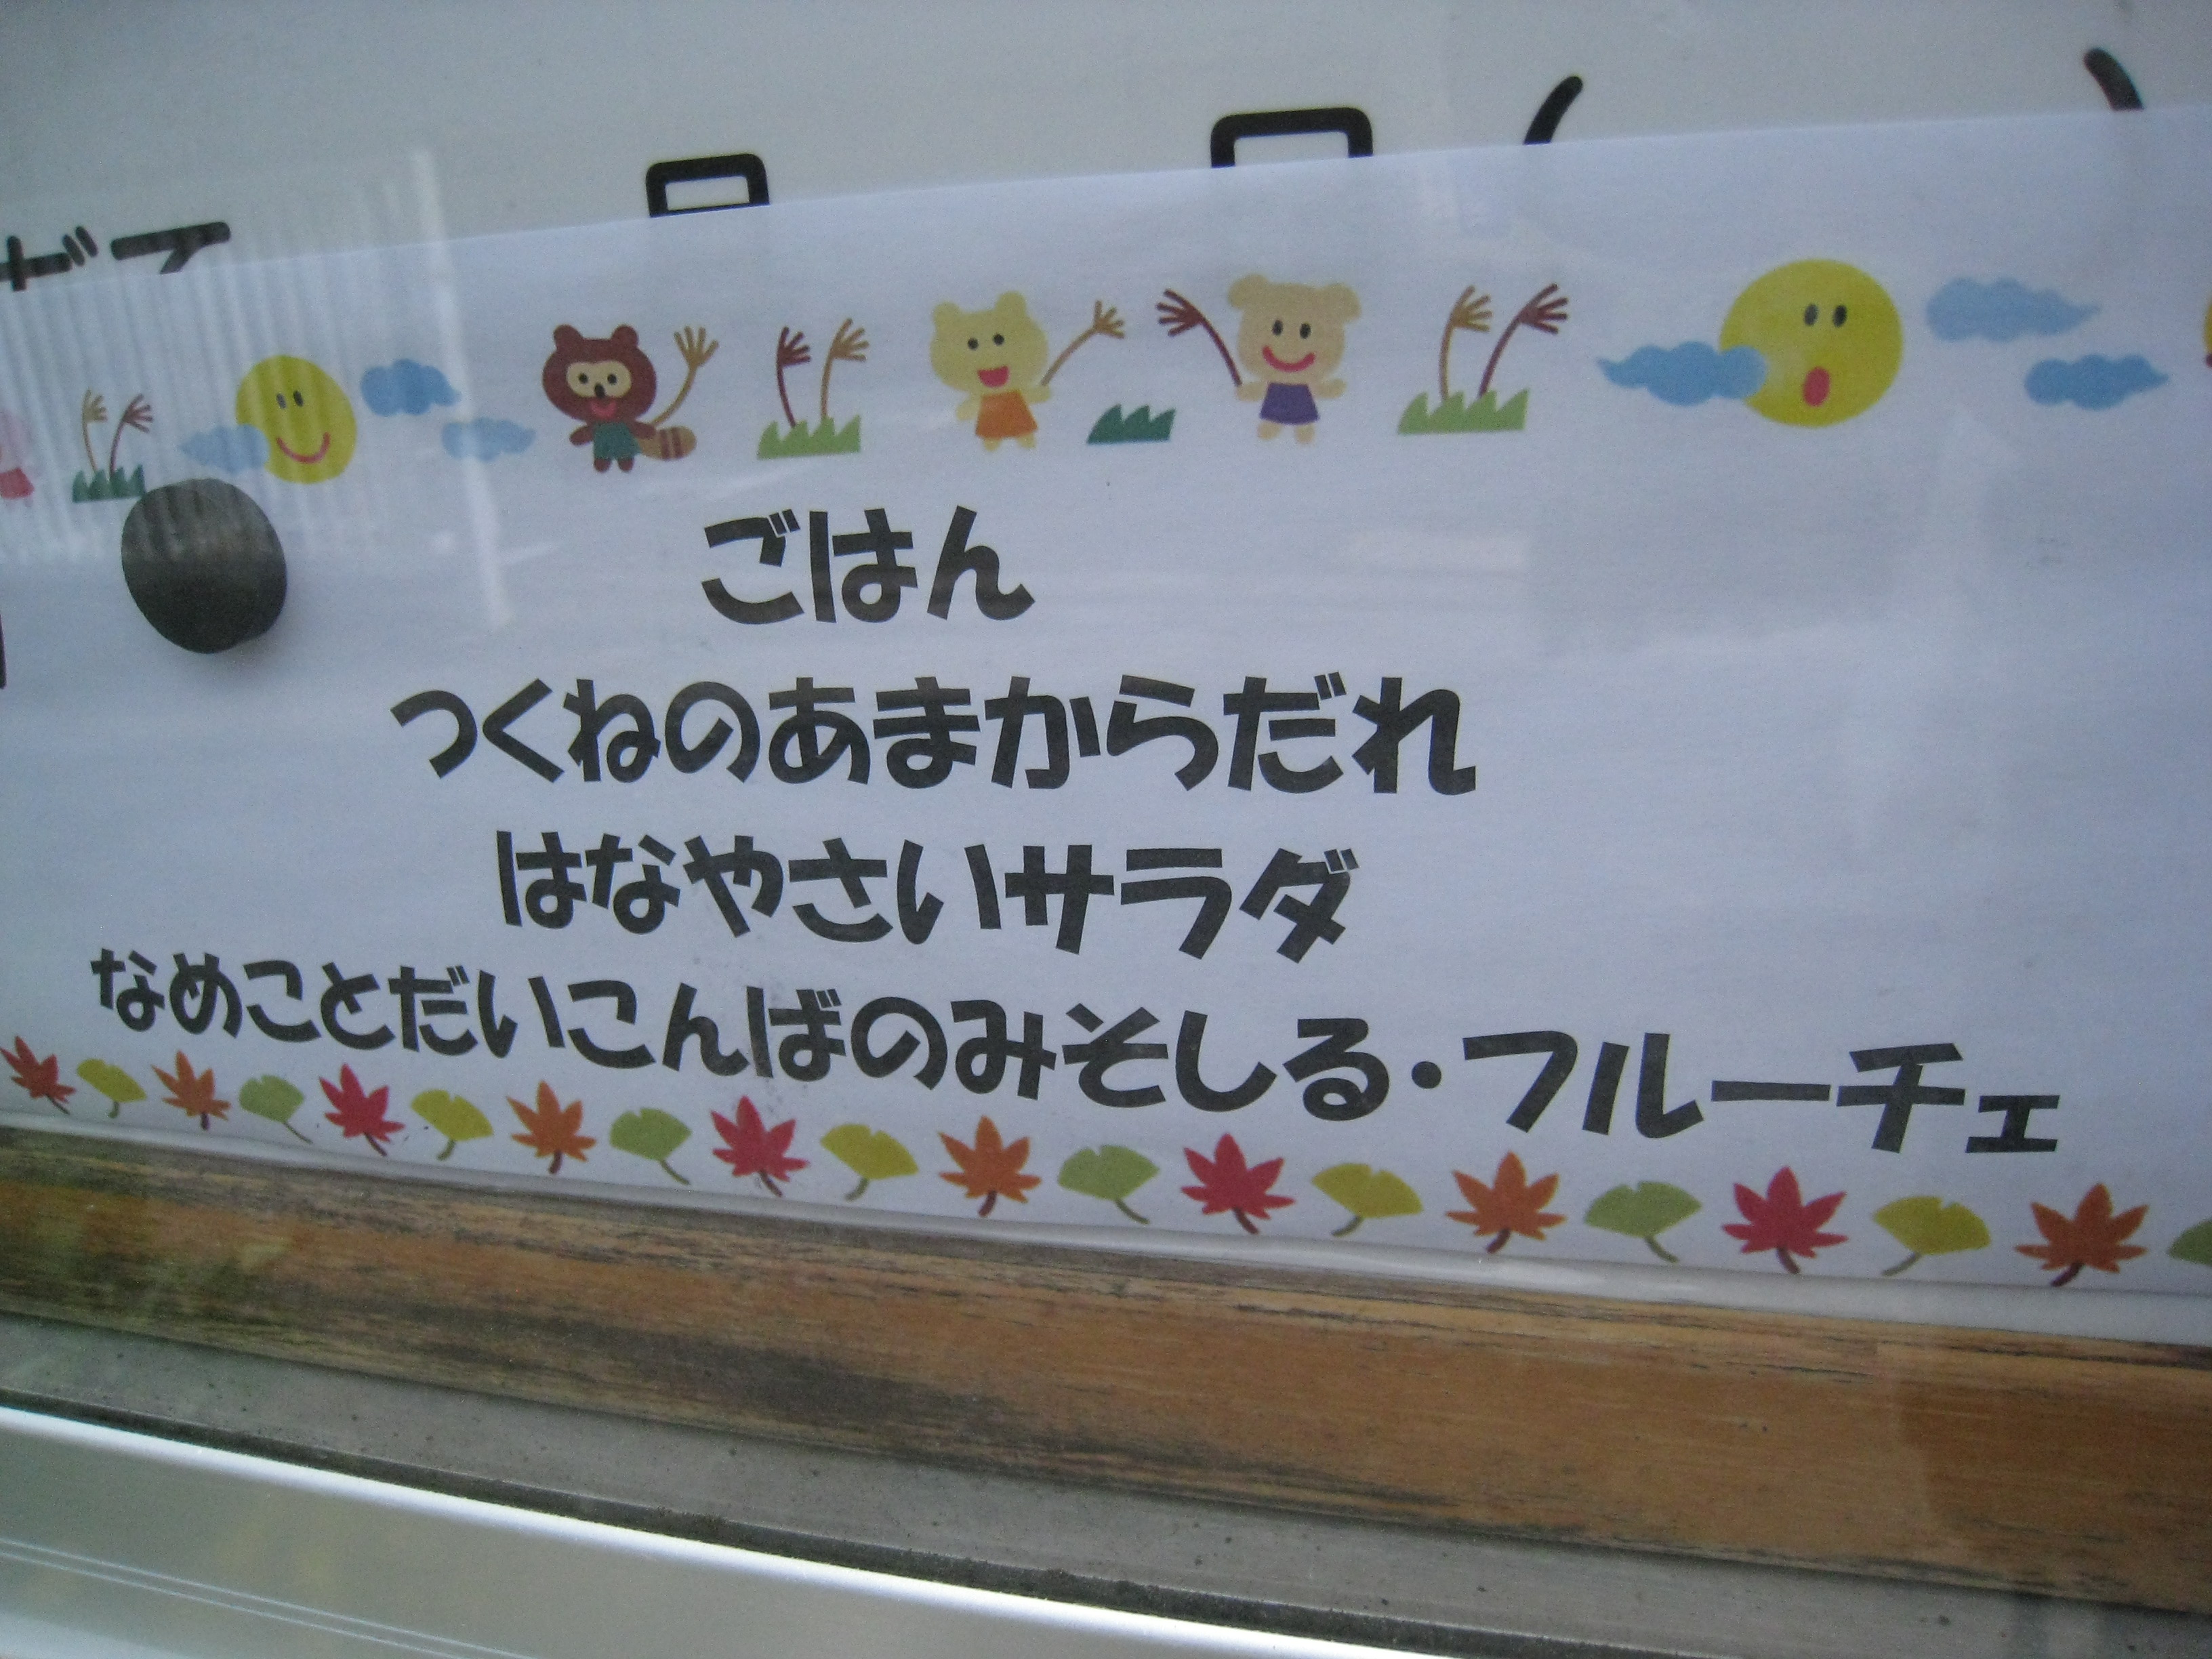 ごはん
つくねのあまからだれ
はなやさいサラダ
なめことだいこんばのみそしる・フルーチェ